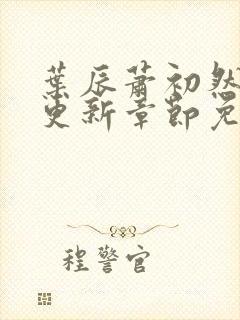 葉辰蕭初然
更新章節免
程警官